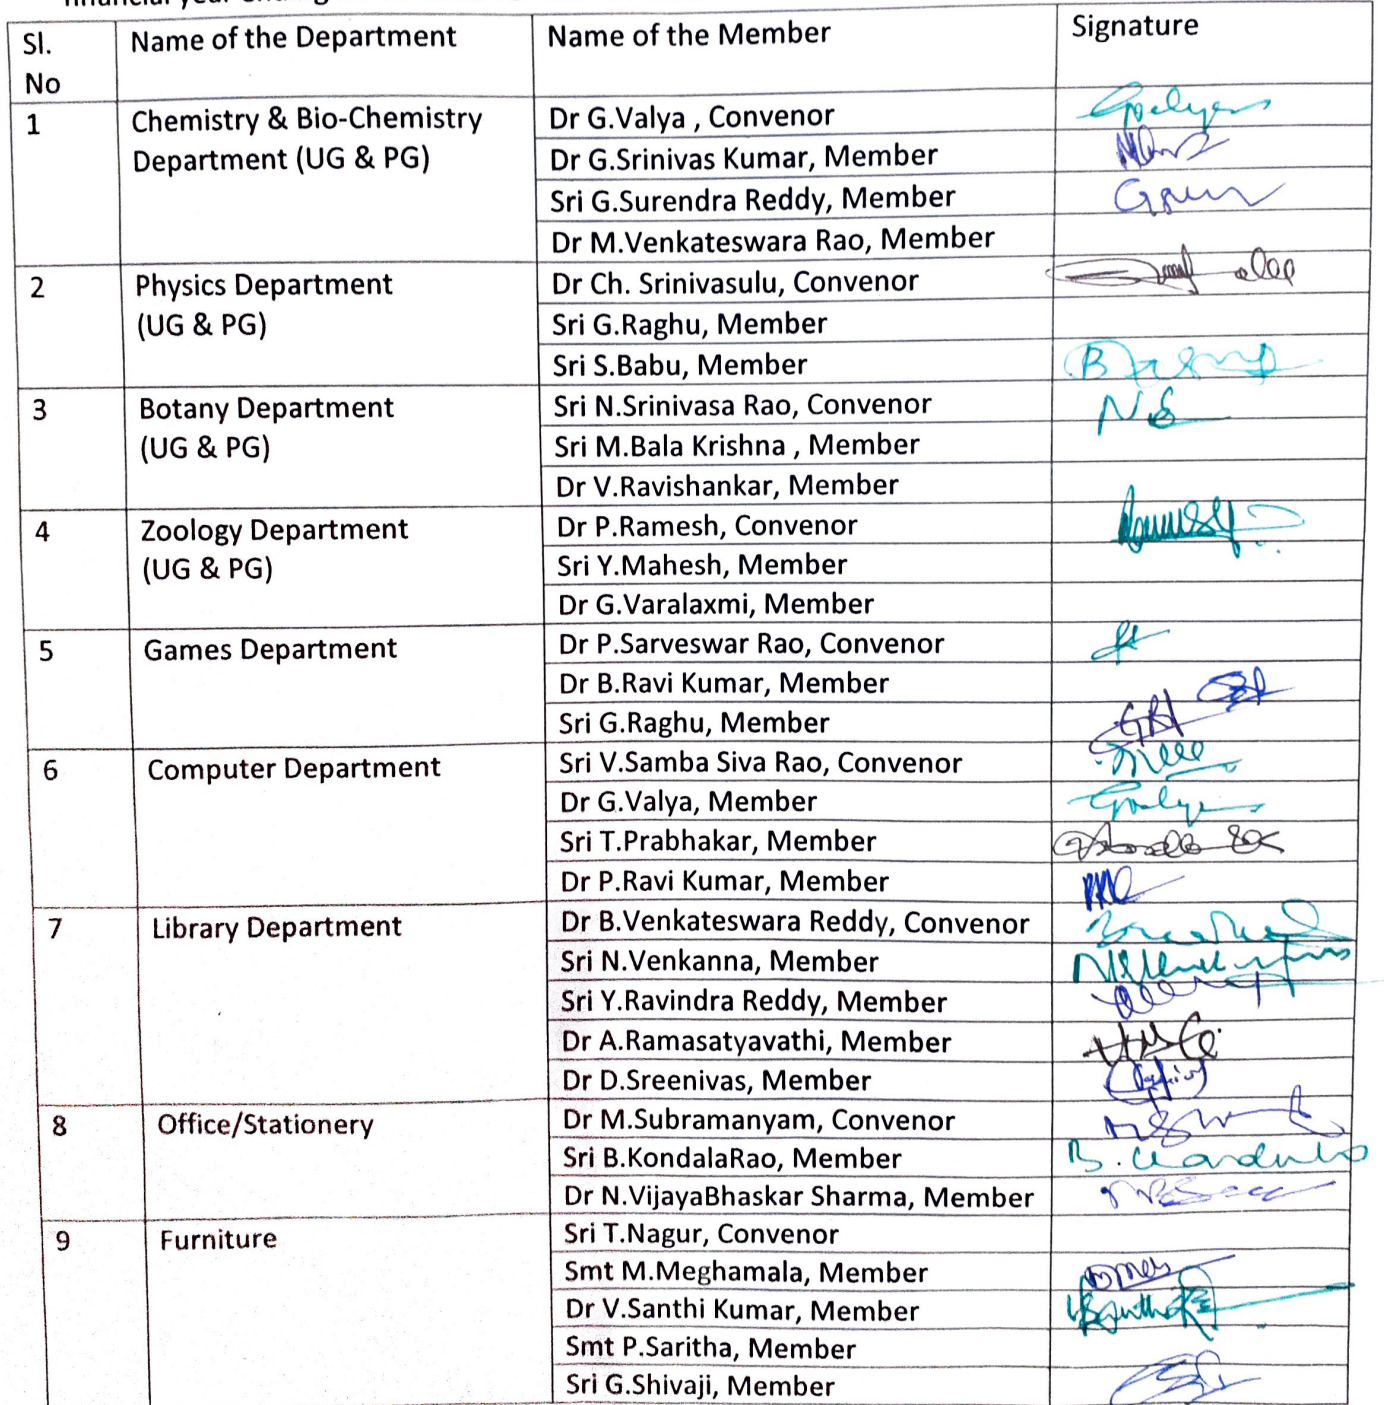 financial year ending
Sl. No | Name of the Department | Name of the Member | Signature
1 | Chemistry & Bio-Chemistry Department (UG & PG) | Dr G.Valya , Convenor
Dr G.Srinivas Kumar, Member
Sri G.Surendra Reddy, Member
Dr M.Venkateswara Rao, Member
2 | Physics Department (UG & PG) | Dr Ch. Srinivasulu, Convenor
Sri G.Raghu, Member
Sri S.Babu, Member
3 | Botany Department (UG & PG) | Sri N.Srinivasa Rao, Convenor
Sri M.Bala Krishna , Member
Dr V.Ravishankar, Member
4 | Zoology Department (UG & PG) | Dr P.Ramesh, Convenor
Sri Y.Mahesh, Member
Dr G.Varalaxmi, Member
5 | Games Department | Dr P.Sarveswar Rao, Convenor
Dr B.Ravi Kumar, Member
Sri G.Raghu, Member
6 | Computer Department | Sri V.Samba Siva Rao, Convenor
Dr G.Valya, Member
Sri T.Prabhakar, Member
Dr P.Ravi Kumar, Member
7 | Library Department | Dr B.Venkateswara Reddy, Convenor
Sri N.Venkanna, Member
Sri Y.Ravindra Reddy, Member
Dr A.Ramasatyavathi, Member
Dr D.Sreenivas, Member
8 | Office/Stationery | Dr M.Subramanyam, Convenor
Sri B.KondalaRao, Member
Dr N.VijayaBhaskar Sharma, Member
9 | Furniture | Sri T.Nagur, Convenor
Smt M.Meghamala, Member
Dr V.Santhi Kumar, Member
Smt P.Saritha, Member
Sri G.Shivaji, Member